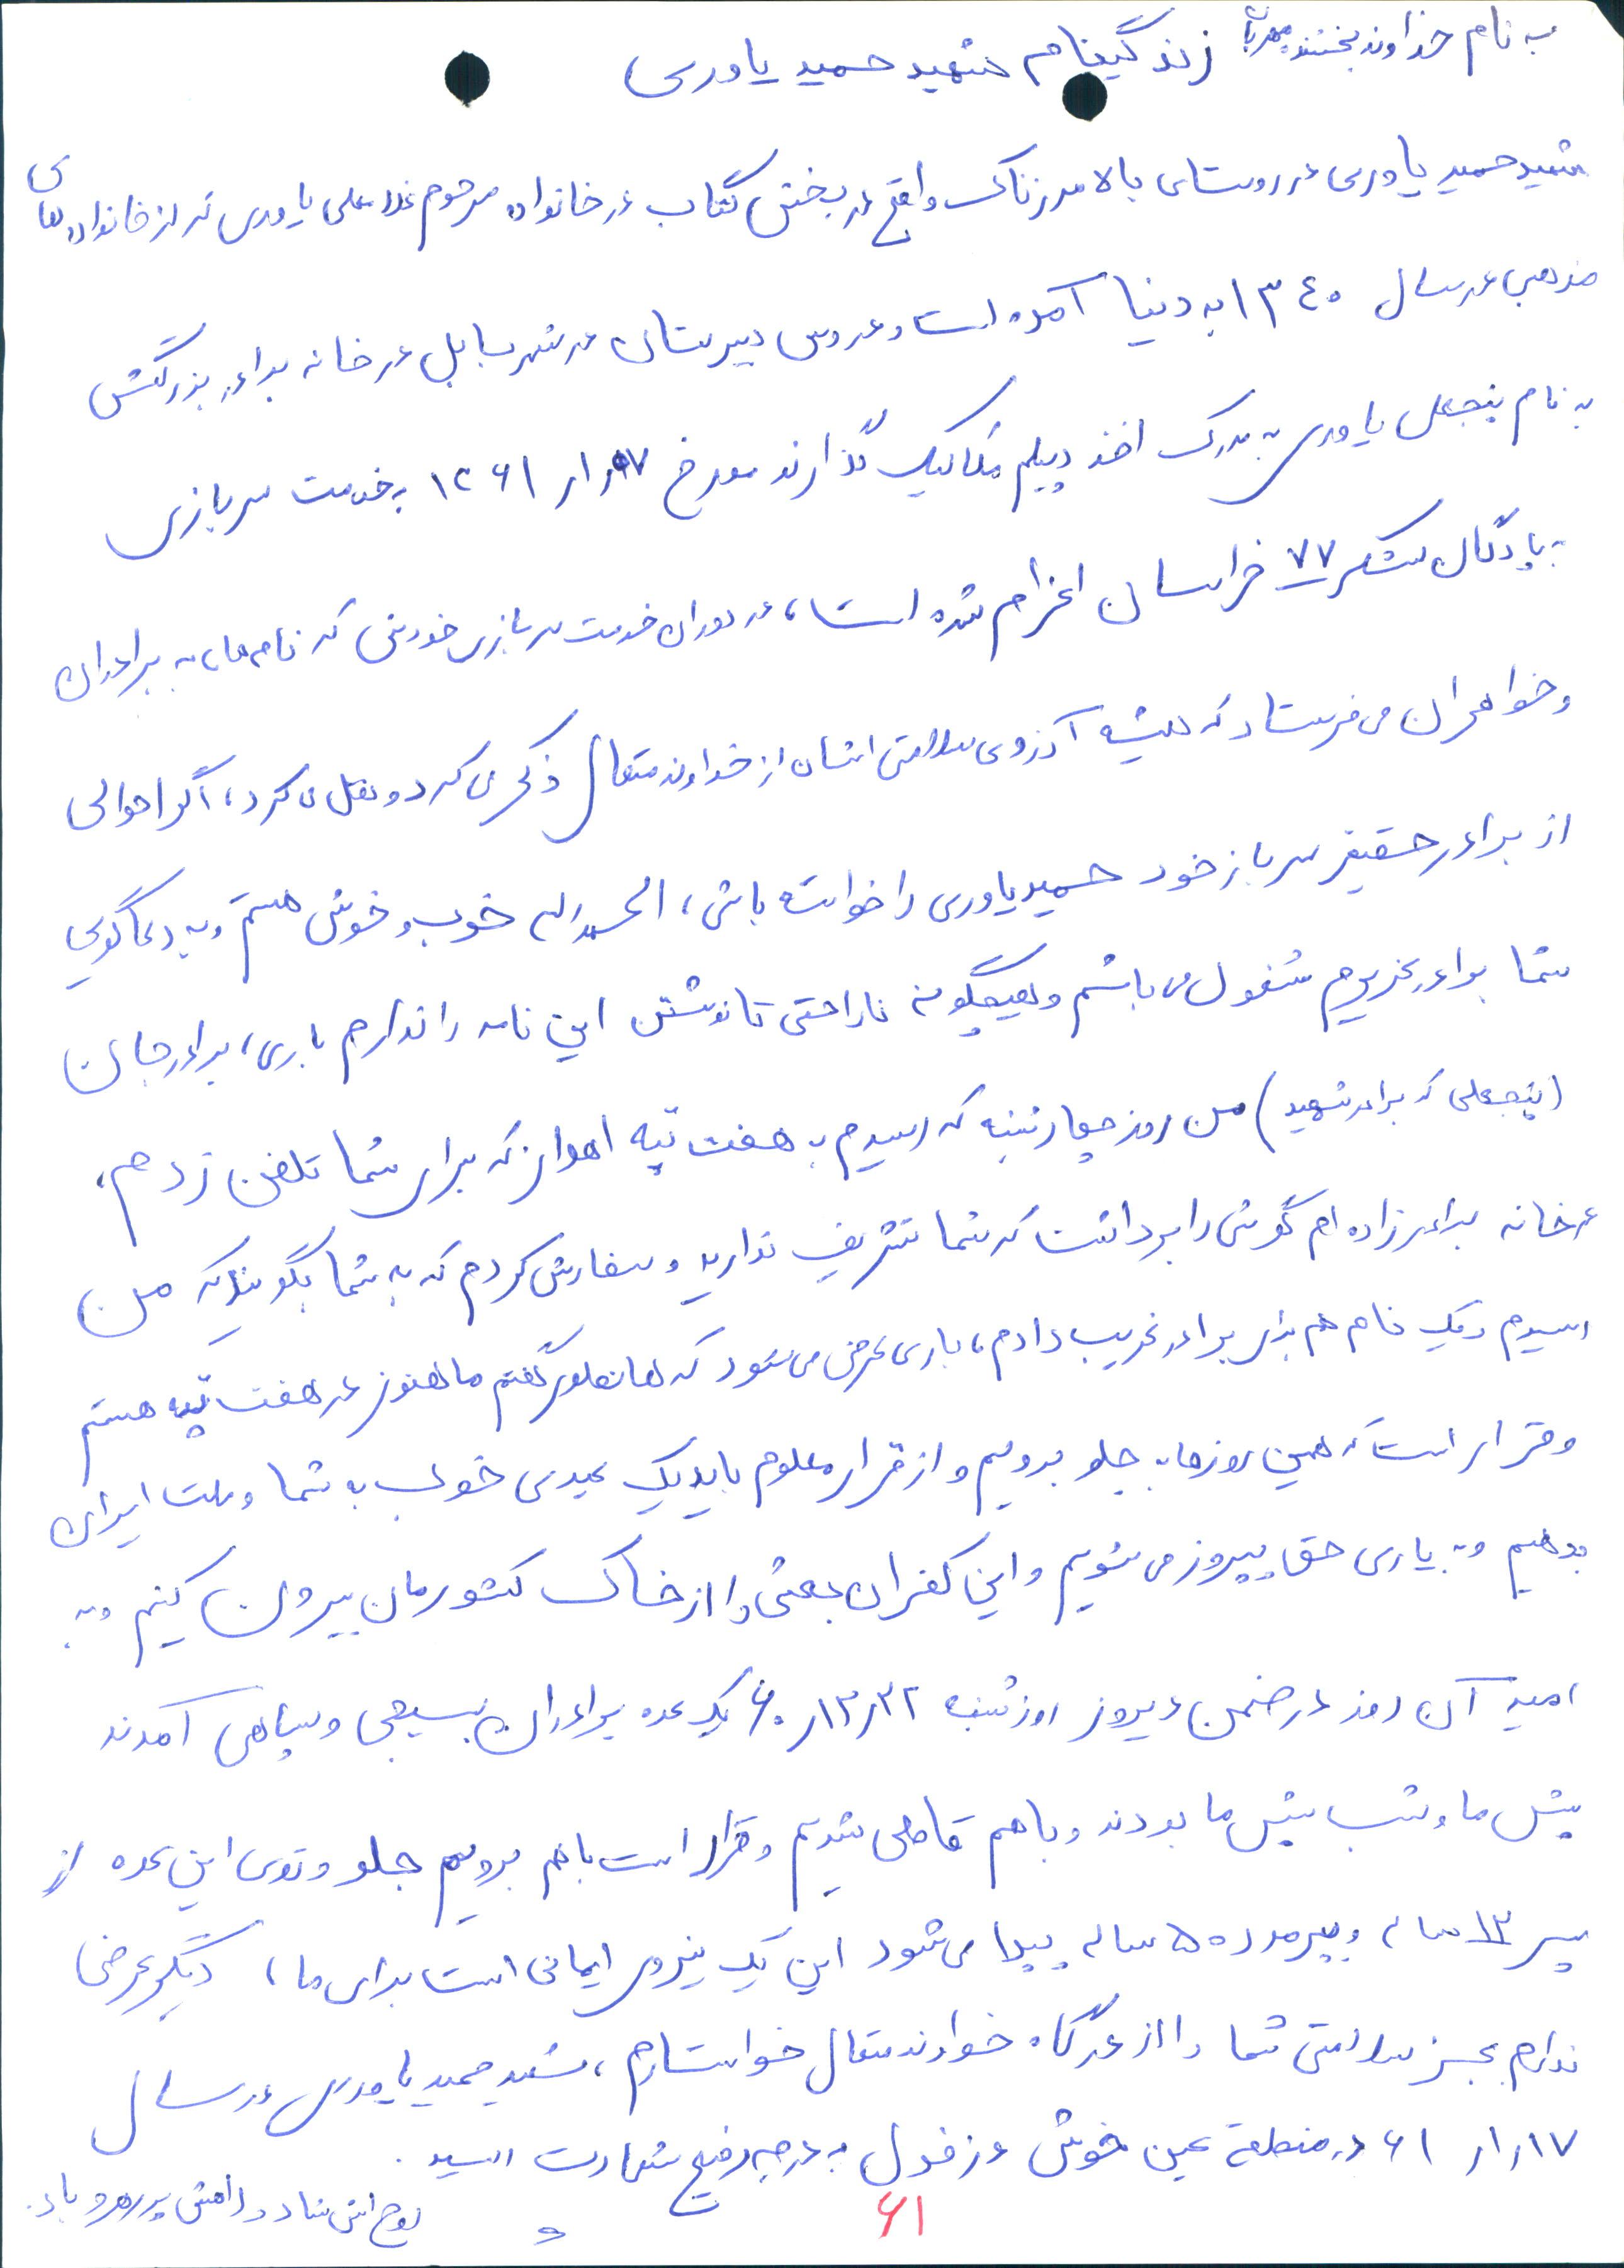 به نام خداوند بخشنده مهربان زندگینامه شهید حمید یاوری
شهید حمید یاوری در روستای بالا مرزناک واقع در بخش گتاب در خانواده مرحوم غلامعلی یاوری که از خانواده های
مذهبی در سال ۱۳۴۰ به دنیا آمده است و دروس دبیرستان در شهر بابل در خانه برادر بزرگش
به نام پنجعلی یاوری به مدرک اخذ دیپلم مکانیک گذارند مورخ ۱۷ر۱ر۱۳۶۱ به خدمت سربازی
به پادگان لشکر ۷۷ خراسان اعزام شده است، در دوران خدمت سربازی خودش که نامه ها به برادران
و خواهران می فرستاد که همیشه آرزوی سلامتی انشان از خداوند متعال ذکر می کرد و نقل می کرد، اگر احوالی
از برادر حقیر سرباز خود حمید یاوری را خواسته باشی، الحمدالله خوب و خوش هستم و به دعاگویی
شما برادر عزیزم مشغول می باشم و هیچگونه ناراحتی تا نوشتن این نامه را ندارم باری، برادر جان
(پنجعلی که برادر شهید) من روز چهارشنبه که رسیدم به هفت تپه اهواز که برای شما تلفن زدم،
در خانه برادرزاده ام گوشی را برداشت که شما تشریف ندارید و سفارش کردم که به شما بگویند که من
رسیدم و یک نامه هم برای برادر غریب دادم، باری عرض می شود که همانطور گفتم ما هنوز در هفت تپه هستیم
و قرار است که همین روزها به جلو برویم و از قرار معلوم باید یک عیدی خوب به شما و ملت ایران
بدهیم و به یاری حق پیروز می شویم و این کفران بعثی را از خاک کشورمان بیرون کنیم و به
امید آن روز در ضمن دیروز روز شنبه ۲۲ر۱۲ر۶۰ یک عده برادران بسیجی و سپاهی آمدند
پیش ما و شب پیش ما بودند و با هم قاطی شدیم و قرار است با هم برویم جلو و توی این عده از
پسر ۱۳ ساله و پیرمرد ۵۰ ساله پیدا می شود این یک نیروی ایمانی است برای ما، دیگر عرضی
ندارم بجز سلامتی شما را از درگاه خداوند متعال خواستارم، شهید حمید یاوری در سال
۱۷ر۱ر۶۱ در منطقه عین خوش دزفول به درجه رفیع شهادت رسید.
روح اش شاد و راهش پر رهرو باد.
۶۱